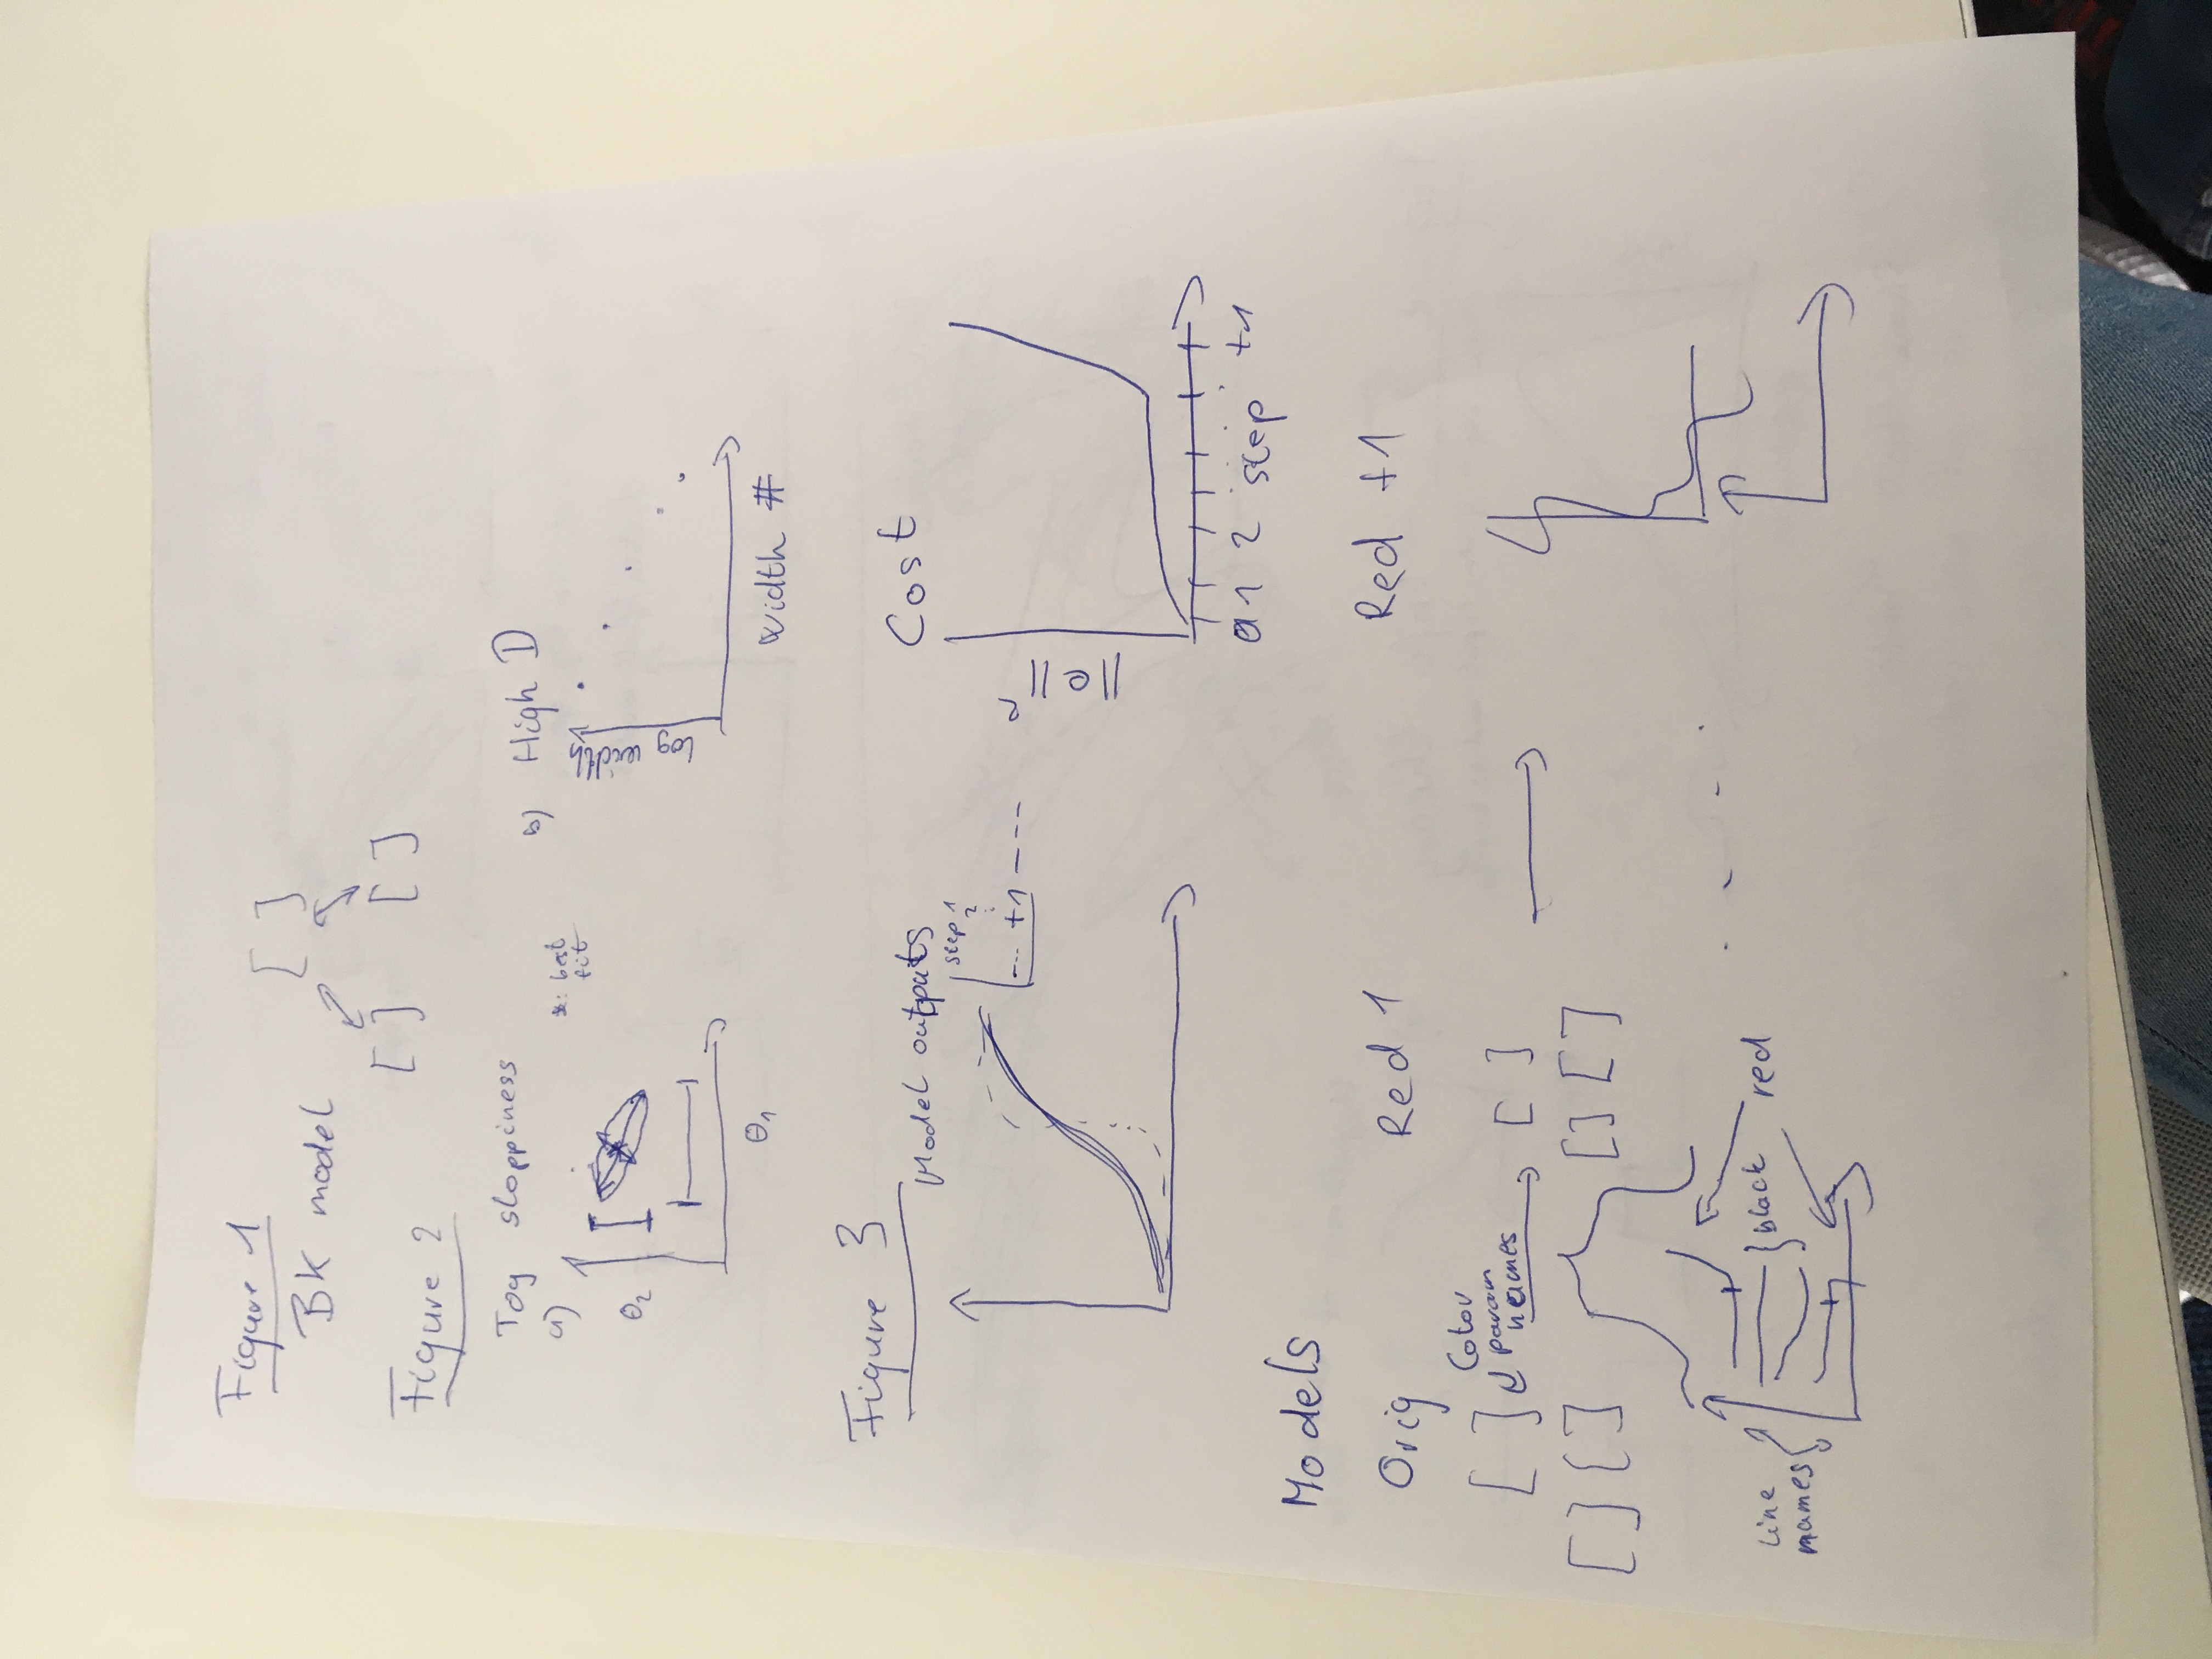 Figure 1
BK model
[ ]
[ ] [ ]
Figure 2
Toy sloppiness
a)
x: best
fit
θ2
θ1
b) High D
log width
Width #
Figure 3
Model outputs
step 1
2
⋮
--- +1 ---
Cost
||e||²
0 1 2 step +1
Models
Orig Red 1 Red +1
[ ] Color
param
names
[ ]
[ ] [ ] [ ] [ ]
Line
names
black
red